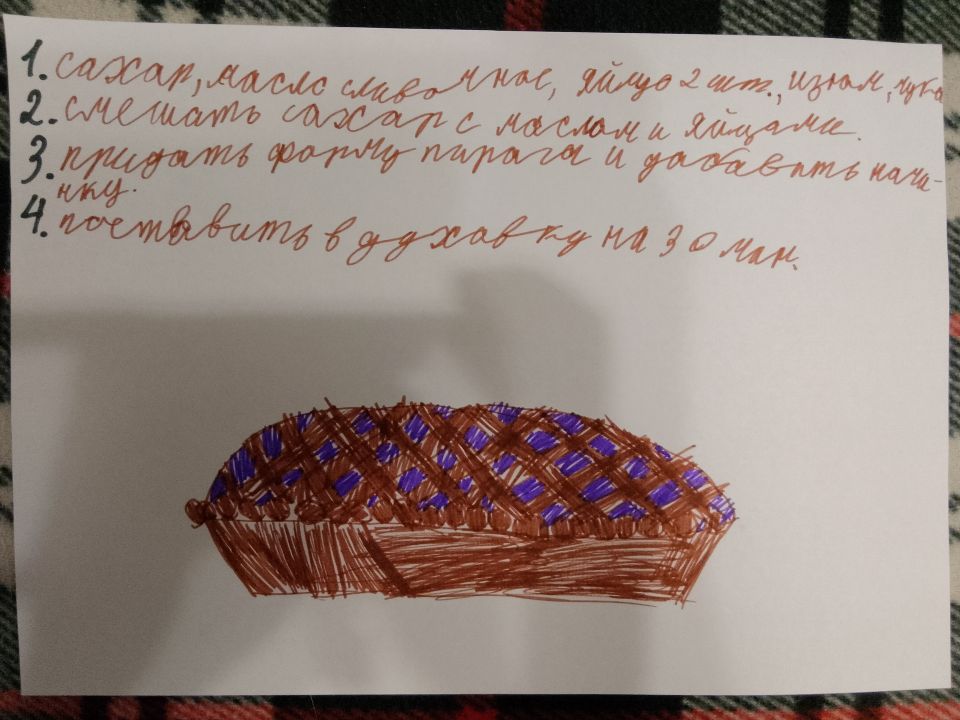 1. сахар, масло сливочное, яйцо 2 шт., изюм, мука
2. смешать сахар с маслом и яйцами.
3. придать форму пирога и добавить начи-
нку.
4. поставить в духовку на 30 мин.